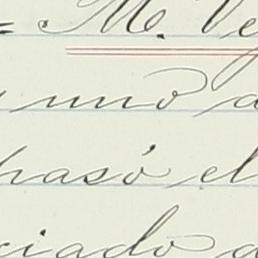 = M. Ve
y uno a
pasó el
ciado a